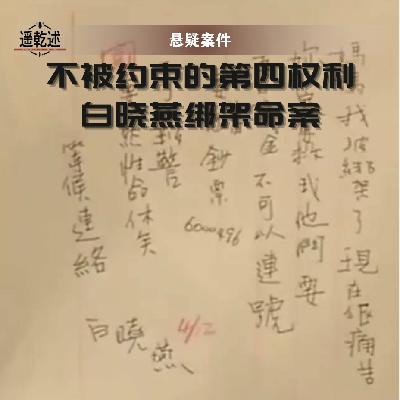 遥乾述
悬疑案件
不被约束的第四权利
白晓燕绑架命案
媽媽我被綁架了現在很痛苦
救我他們要
金不可以連號
鈔票
警
性命休矣
等候連絡
白曉燕
4/12